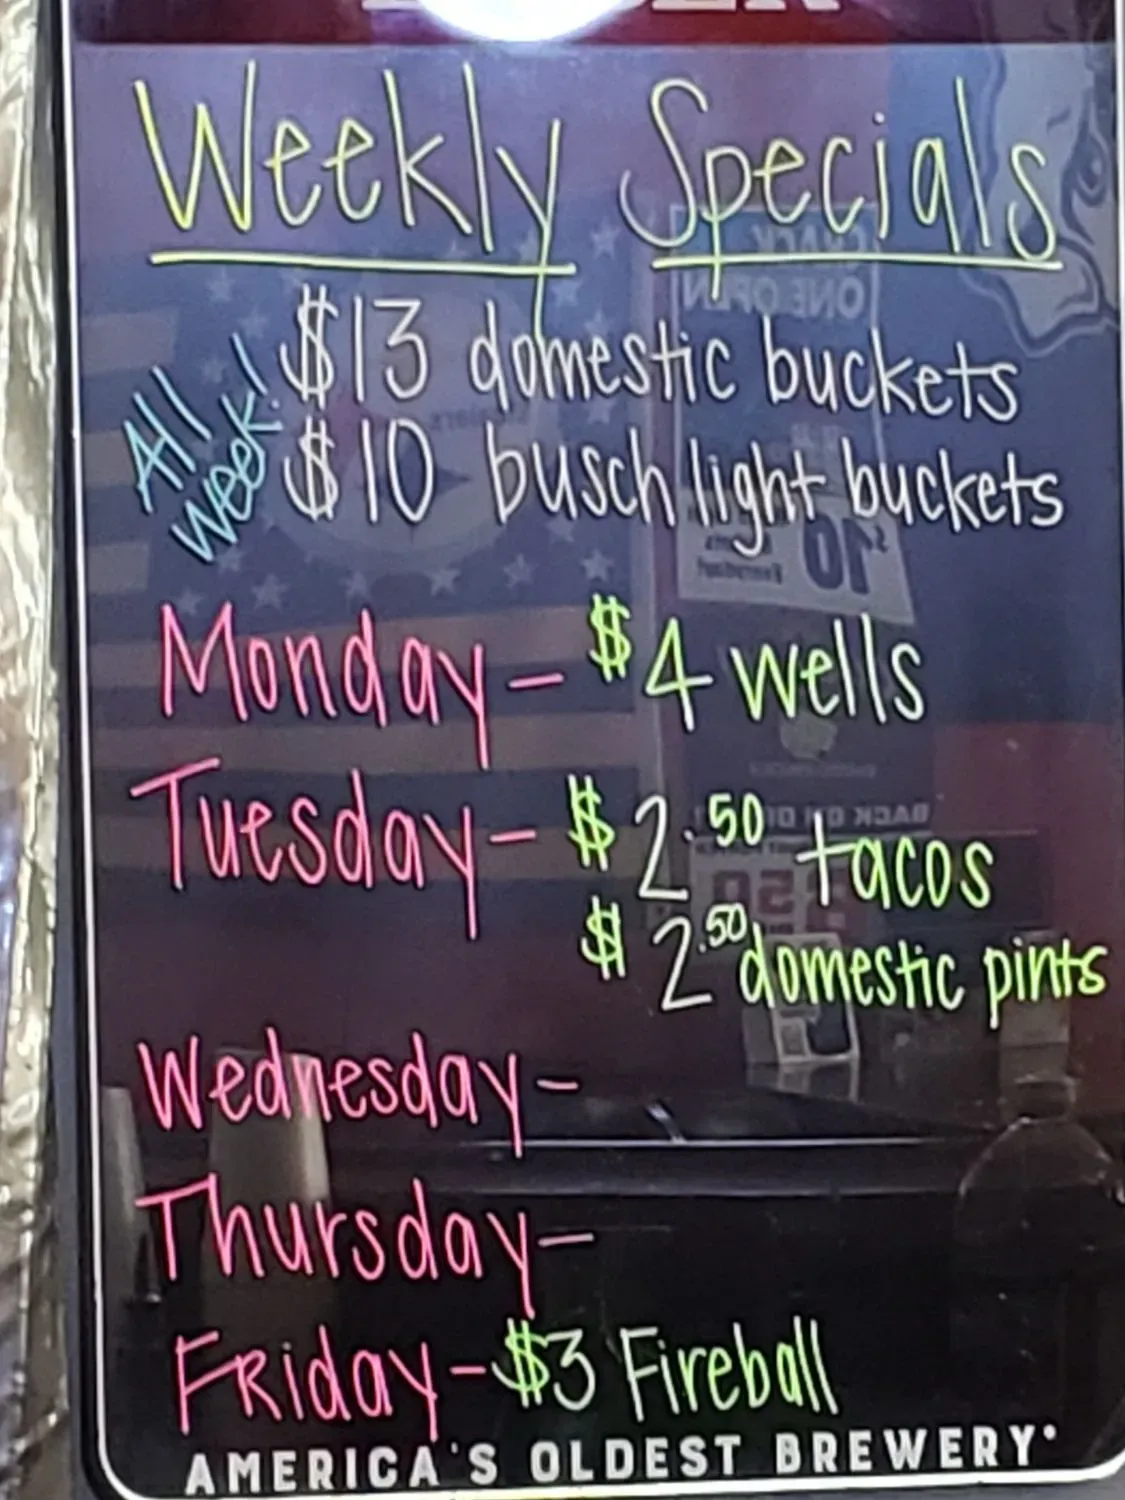 Weekly Specials
All week!
$13 domestic buckets
$10 busch light buckets
Monday - $4 wells
Tuesday - $2.50 tacos
$2.50 domestic pints
Wednesday -
Thursday -
Friday - $3 Fireball
AMERICA'S OLDEST BREWERY